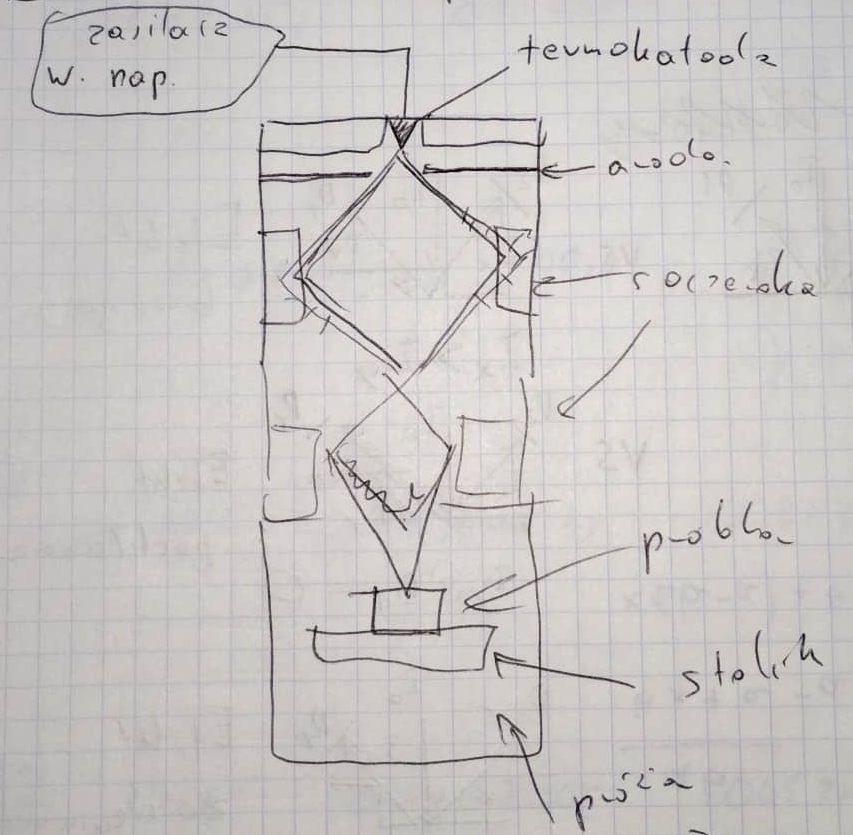 zasilacz
w. nap.
termokatoda
anoda
soczewka
próbka
stolik
próżnia